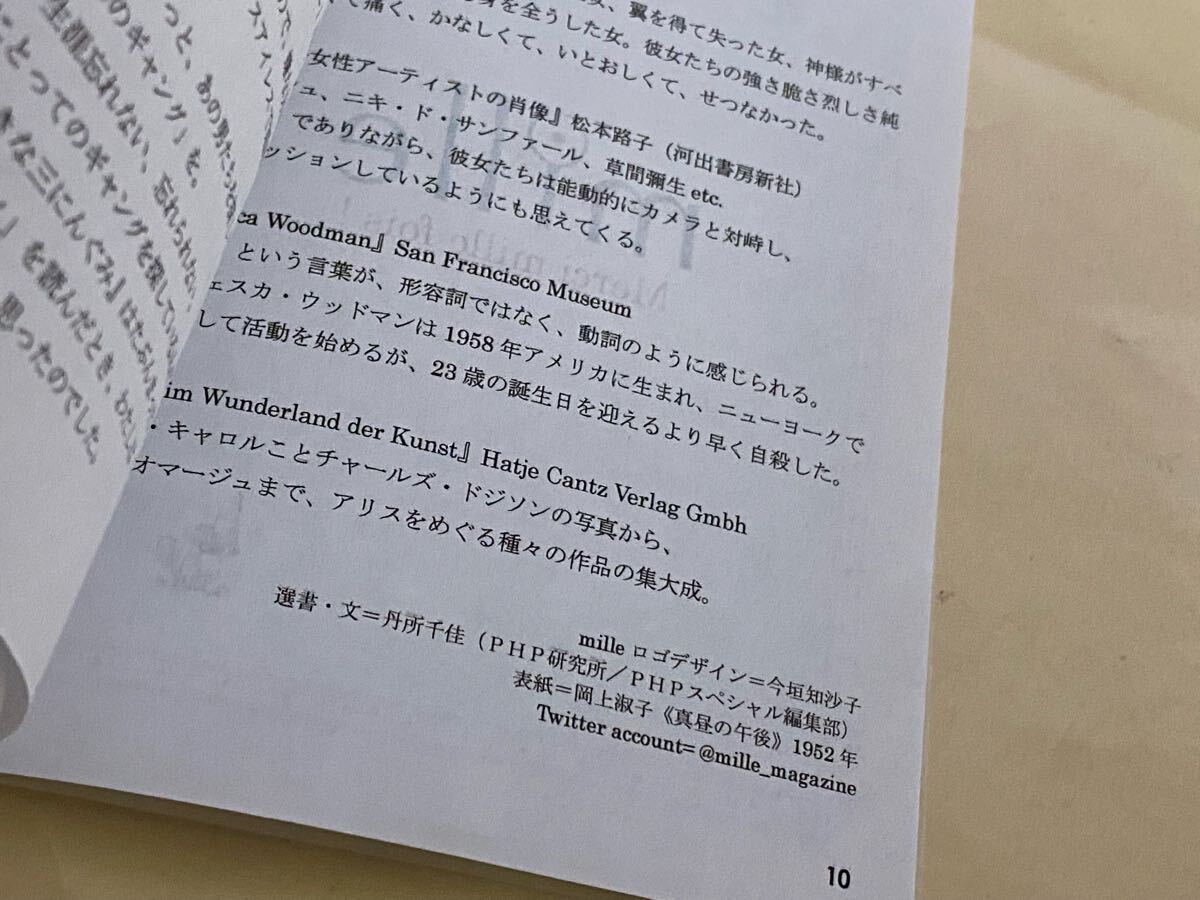 、翼を得て失った女、神様がすべ
身を全うした女。彼女たちの強さ脆さ烈しさ純
て痛く、かなしくて、いとおしくて、せつなかった。
女性アーティストの肖像』松本路子（河出書房新社）
ュ、ニキ・ド・サンファール、草間彌生 etc.
でありながら、彼女たちは能動的にカメラと対峙し、
ッションしているようにも思えてくる。
ca Woodman』San Francisco Museum
という言葉が、形容詞ではなく、動詞のように感じられる。
ェスカ・ウッドマンは 1958 年アメリカに生まれ、ニューヨークで
して活動を始めるが、23 歳の誕生日を迎えるより早く自殺した。
im Wunderland der Kunst』Hatje Cantz Verlag Gmbh
・キャロルことチャールズ・ドジソンの写真から、
オマージュまで、アリスをめぐる種々の作品の集大成。
mille ロゴデザイン＝今垣知沙子
選書・文＝丹所千佳（ＰＨＰ研究所／ＰＨＰスペシャル編集部）
表紙＝岡上淑子《真昼の午後》1952 年
Twitter account= @mille_magazine
10
っと、あの男たち
のギャング」を。
生涯忘れない、忘れられない
とってのギャングを探してい
きな三にんぐみ』はたぶん
」を読んだとき、わたし
思ったのでした。